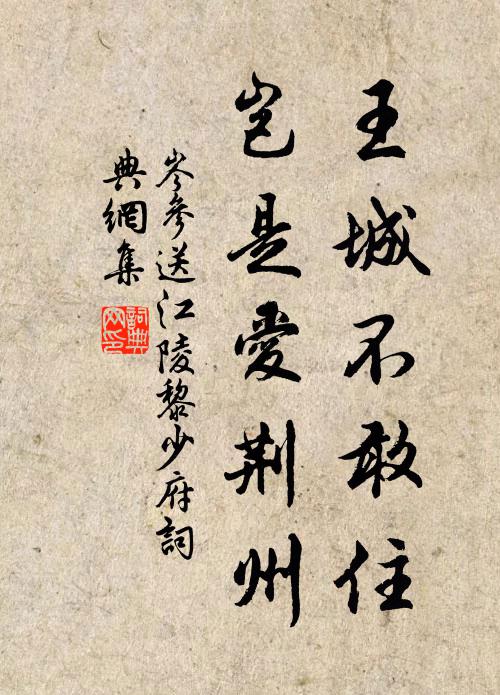 王城不敢住
豈是愛荆州
岑參送江陵黎少府詞
典網集
詞典
网印